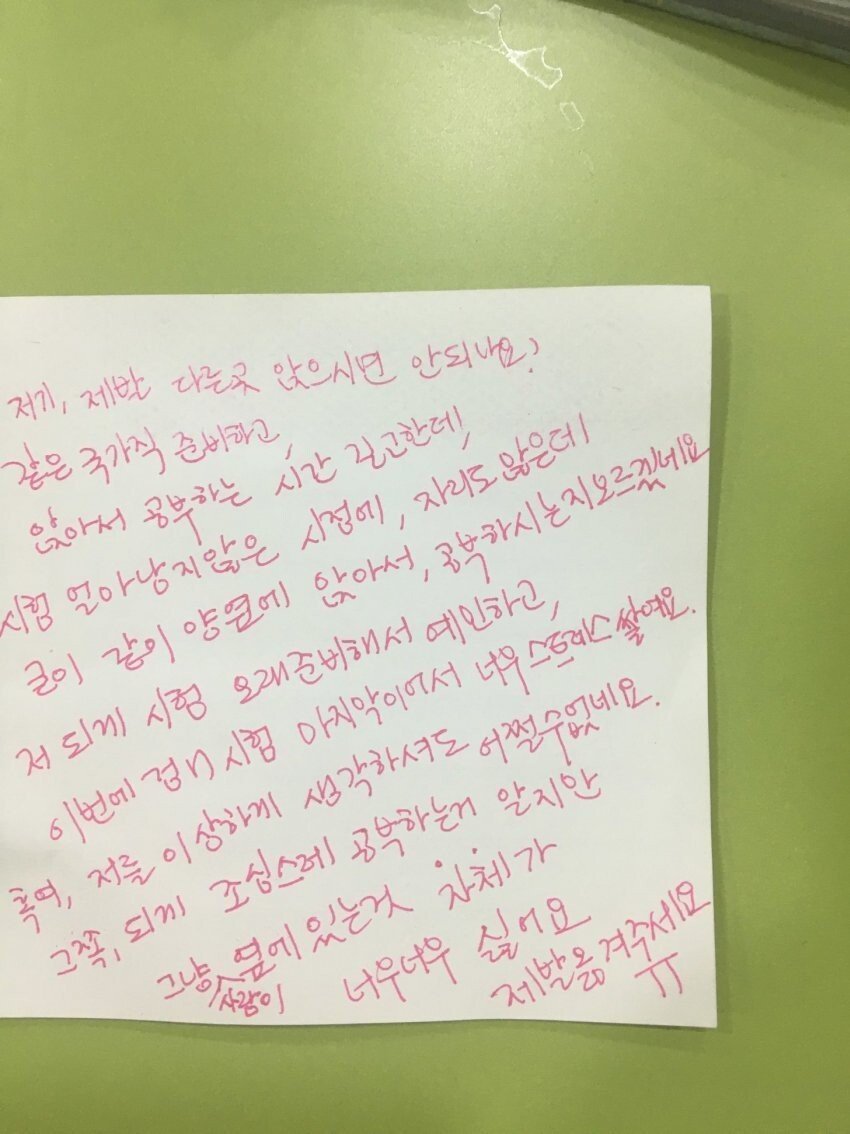 저기, 제발 다른곳 앉으시면 안되나요?
같은 국가직 준비하고,
앉아서 공부하는 시간 길고한데,
시험 얼마남지않은 시점에, 자리도 많은데
굳이 같이 양옆에 앉아서, 공부하시는지모르겠네요
저 되게 시험 오래준비해서 예민하고,
이번에 경채시험 마지막이어서 너무 스트레스 쌓여요.
혹여, 저를 이상하게 생각하셔도 어쩔수없네요.
그쪽, 되게 조심스레 공부하는거 알지만
그냥 사람이 옆에 있는것 자체가
너무너무 싫어요
제발옮겨주세요
ㅠ